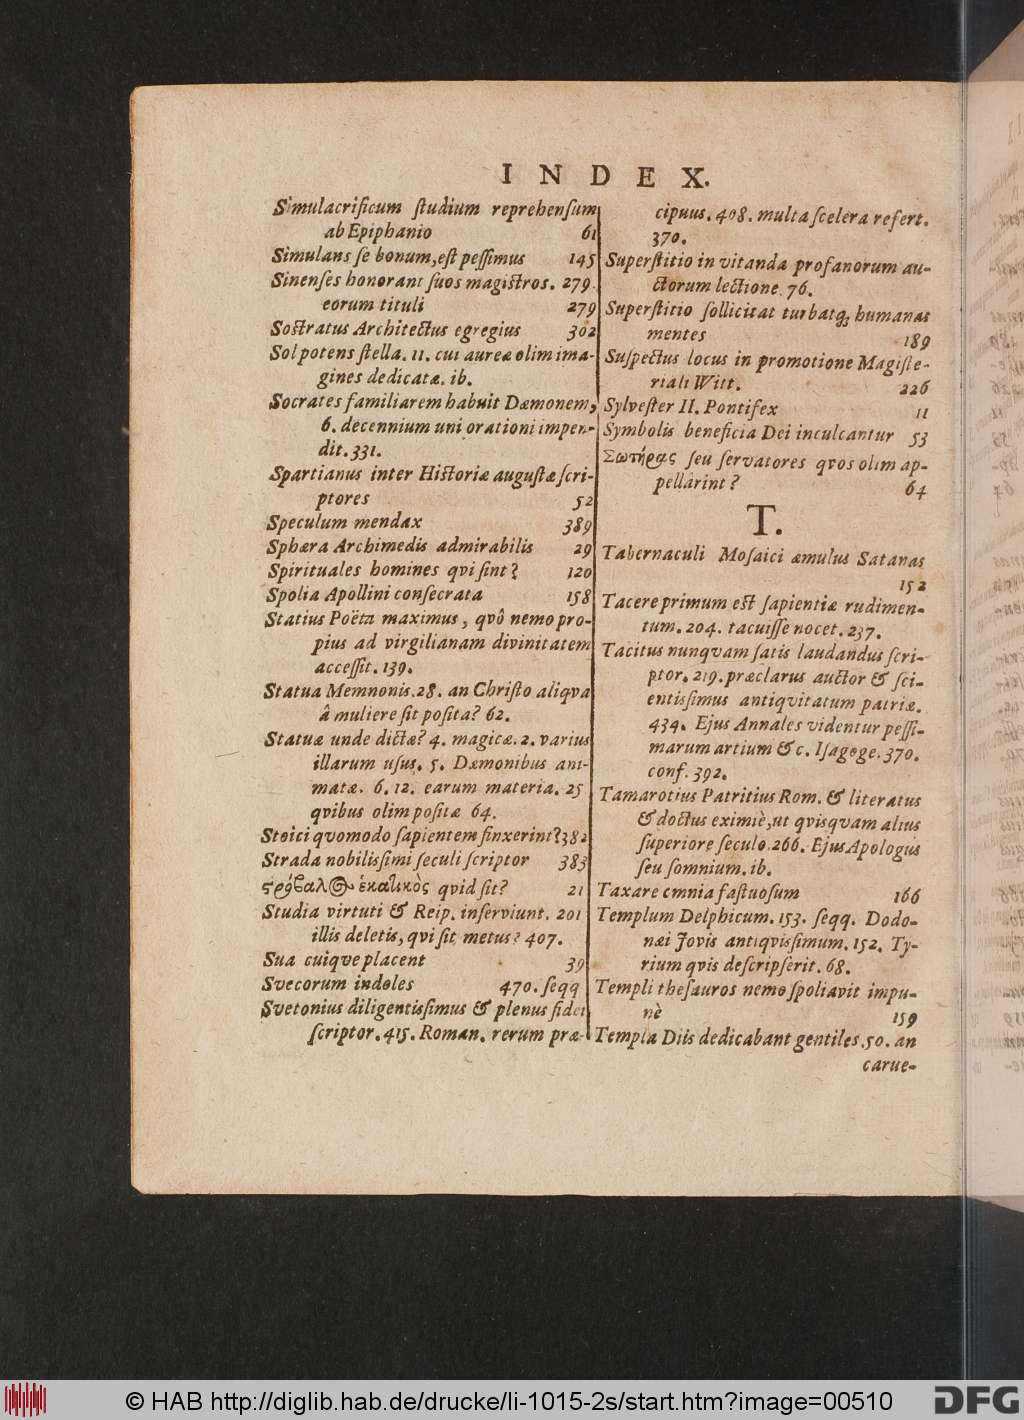 INDEX.
Simulacrificum ſtudium reprehenſum
ab Epiphanio 61
Simulans ſe bonum, eſt peſſimus 145
Sinenſes honorant ſuos magiſtros. 279
eorum tituli 279
Soſtratus Architectus egregius 302
Sol potens ſtella. 11. cui aureæ olim ima-
gines dedicatæ. ib.
Socrates familiarem habuit Dæmonem,
6. decennium uni orationi impen-
dit. 331.
Spartianus inter Hiſtoriæ auguſtæ ſcri-
ptores 52
Speculum mendax 389
Sphæra Archimedis admirabilis 29
Spirituales homines qvi ſint? 120
Spolia Apollini conſecrata 158
Statius Poëta maximus, qvô nemo pro-
pius ad virgilianam divinitatem
acceſſit. 139.
Statua Memnonis. 28. an Chriſto aliqva
â muliere ſit poſita? 62.
Statuæ unde dictæ? 4. magicæ. 2. varius
illarum uſus. 5. Dæmonibus ani-
matæ. 6. 12. earum materia. 25
qvibus olim poſitæ 64.
Stoici qvomodo ſapientem finxerint? 382
Strada nobiliſſimi ſeculi ſcriptor 383
ἑκατικὸς qvid ſit? 21
Studia virtuti & Reip. inſerviunt. 201
illis deletis, qvi ſit metus? 407.
Sua cuiqve placent 39
Svecorum indoles 470. ſeqq
Svetonius diligentisſimus & plenus fidei
ſcriptor. 415. Roman. rerum præ-
cipuus. 408. multa ſcelera refert.
370.
Superſtitio in vitanda profanorum au-
ctorum lectione. 76.
Superſtitio ſollicitat turbatq; humanas
mentes 189
Suſpectus locus in promotione Magiſte-
riali Witt. 226
Sylveſter II. Pontifex 11
Symbolis beneficia Dei inculcantur 53
Σωτήρας ſeu ſervatores qvos olim ap-
pellârint? 64
T.
Tabernaculi Moſaici æmulus Satanas
152
Tacere primum eſt ſapientiæ rudimen-
tum. 204. tacuiſſe nocet. 237.
Tacitus nunqvam ſatis laudandus ſcri-
ptor. 219. præclarus auctor & ſci-
entisſimus antiqvitatum patriæ.
434. Ejus Annales videntur peſſi-
marum artium &c. Iſagoge. 370.
conf. 392.
Tamarotius Patritius Rom. & literatus
& doctus eximiè, ut qvisqvam alius
ſuperiore ſeculo. 266. Ejus Apologus
ſeu ſomnium. ib.
Taxare omnia faſtuoſum 166
Templum Delphicum. 153. ſeqq. Dodo-
næi Jovis antiqvisſimum. 152. Ty-
rium qvis deſcripſerit. 68.
Templi theſauros nemo ſpoliavit impu-
nè 159
Templa Diis dedicabant gentiles. 50. an
carue-
© HAB http://diglib.hab.de/drucke/li-1015-2s/start.htm?image=00510
DFG